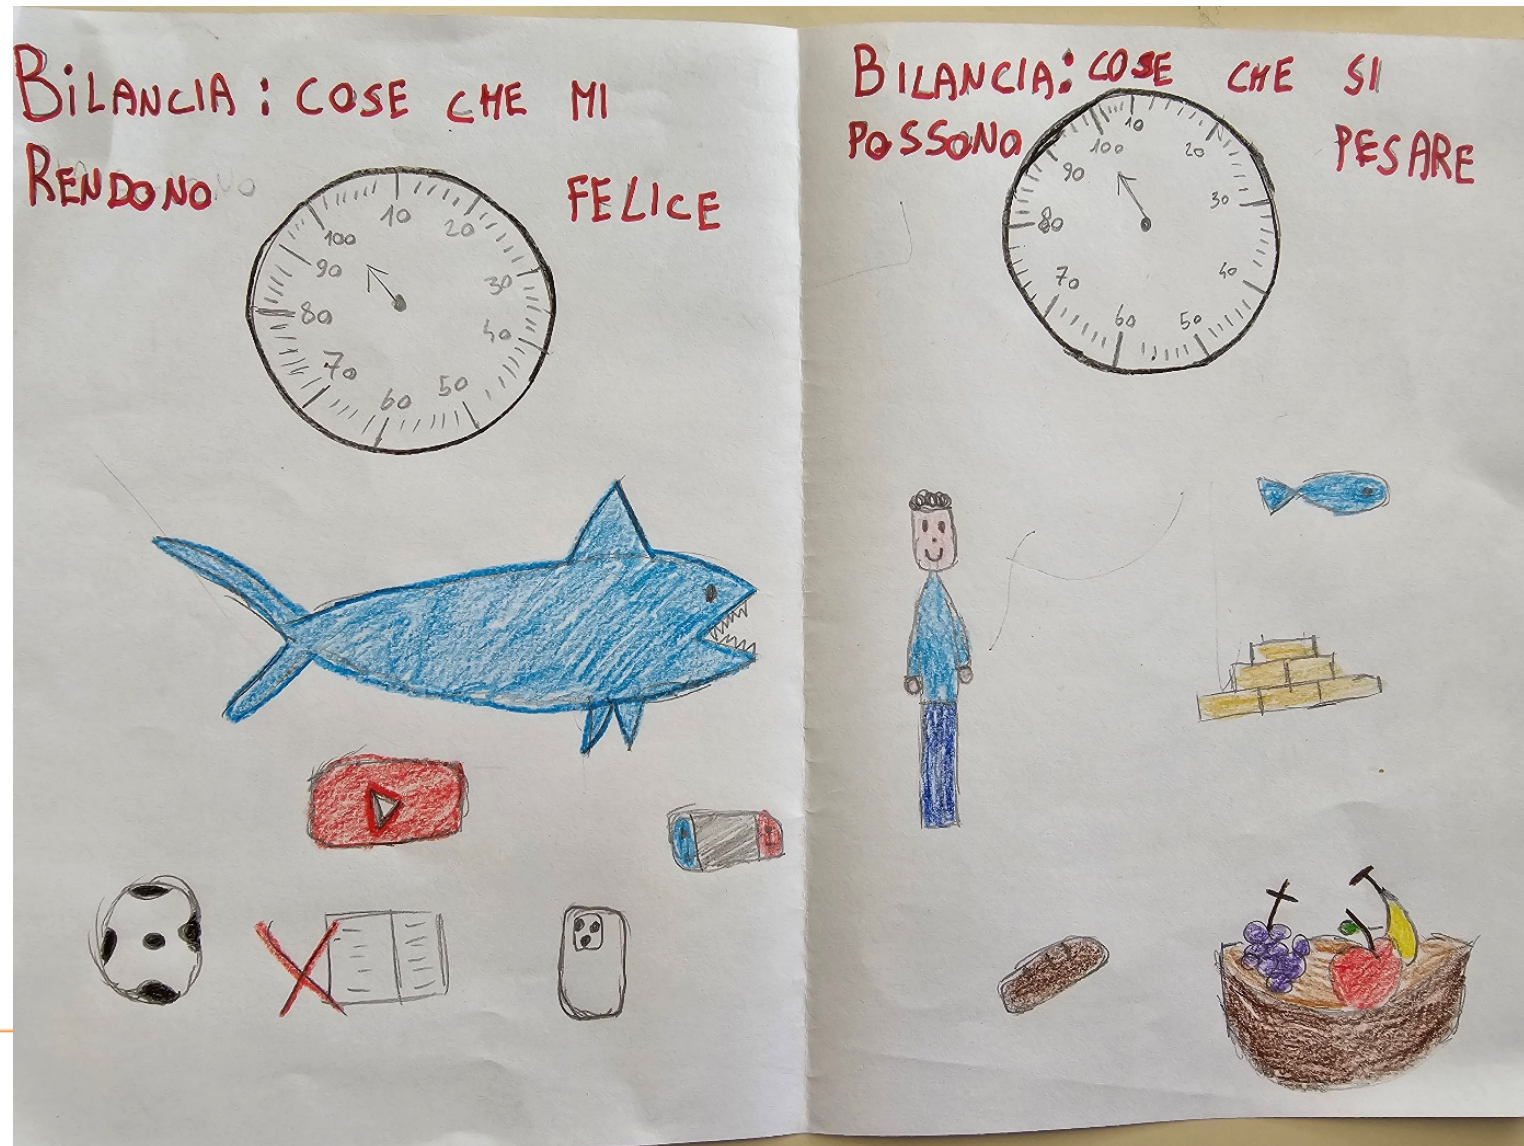 BiLANCIA : COSE CHE MI
RENDONO FELICE
10
20
30
40
50
60
70
80
90
100
BILANCIA: COSE CHE SI
POSSONO PESARE
10
20
30
40
50
60
70
80
90
100